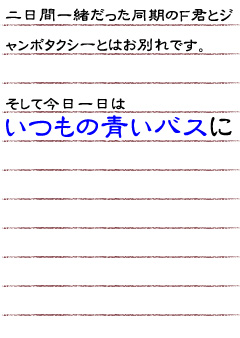 二日間一緒だった同期のF君とジ
ャンボタクシーとはお別れです。
そして今日一日は
いつもの青いバスに